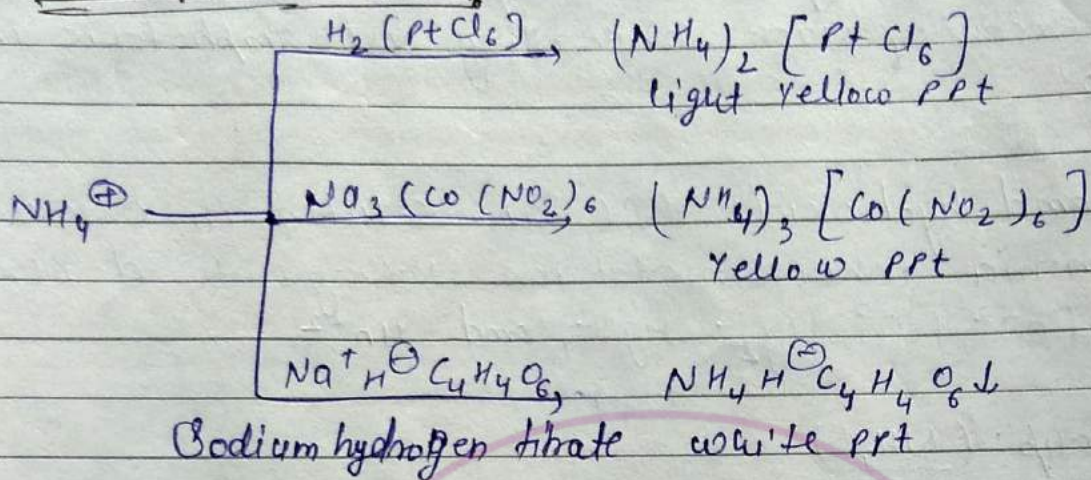 H₂ (PtCl₆) → (NH₄)₂ [PtCl₆]
light Yellow PPt
NH₄⊕ Na₃(Co(NO₂)₆ → (NH₄)₃ [Co(NO₂)₆]
Yellow PPt
Na⁺ H⊖ C₄H₄O₆, NH₄ H⊖C₄H₄O₆↓
Sodium hydrogen titrate white ppt